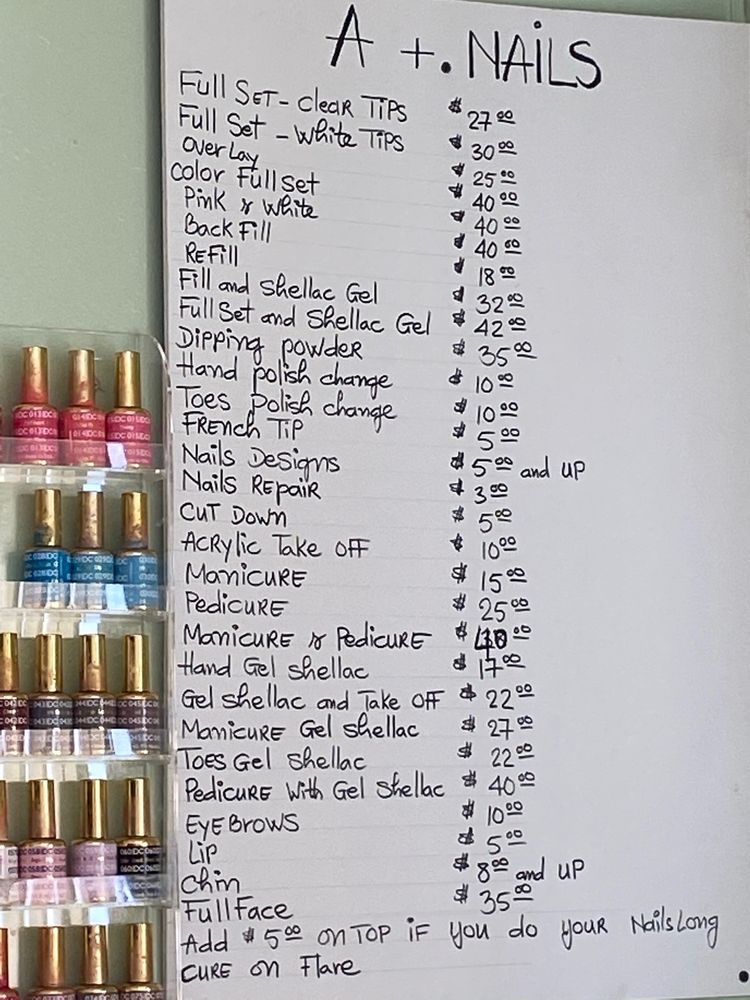 A +. NAiLS
Full SET - Clear TiPS $ 27.00
Full Set - White TiPS $ 30.00
OverLay $ 25.00
Color Full set $ 40.00
Pink & White $ 40.00
Back Fill $ 40.00
REFill $ 18.00
Fill and shellac Gel $ 32.00
Full Set and Shellac Gel $ 42.00
Dipping powder $ 35.00
Hand polish change $ 10.00
Toes polish change $ 10.00
FRENCH TiP $ 5.00
Nails Designs $ 5.00 and UP
Nails REPAiR $ 3.00
CUT Down $ 5.00
ACRYLiC Take OFF $ 10.00
ManiCURE $ 15.00
PediCURE $ 25.00
ManiCURE & PediCURE $ 40.00
Hand Gel shellac $ 17.00
Gel shellac and Take OFF $ 22.00
ManiCURE Gel shellac $ 27.00
TOES Gel shellac $ 22.00
PediCURE With Gel Shellac $ 40.00
EYE BROWS $ 10.00
Lip $ 5.00
Chin $ 8.00 and UP
Full Face $ 35.00
Add $ 5.00 ON TOP iF you do your Nails Long
CURE on Flare